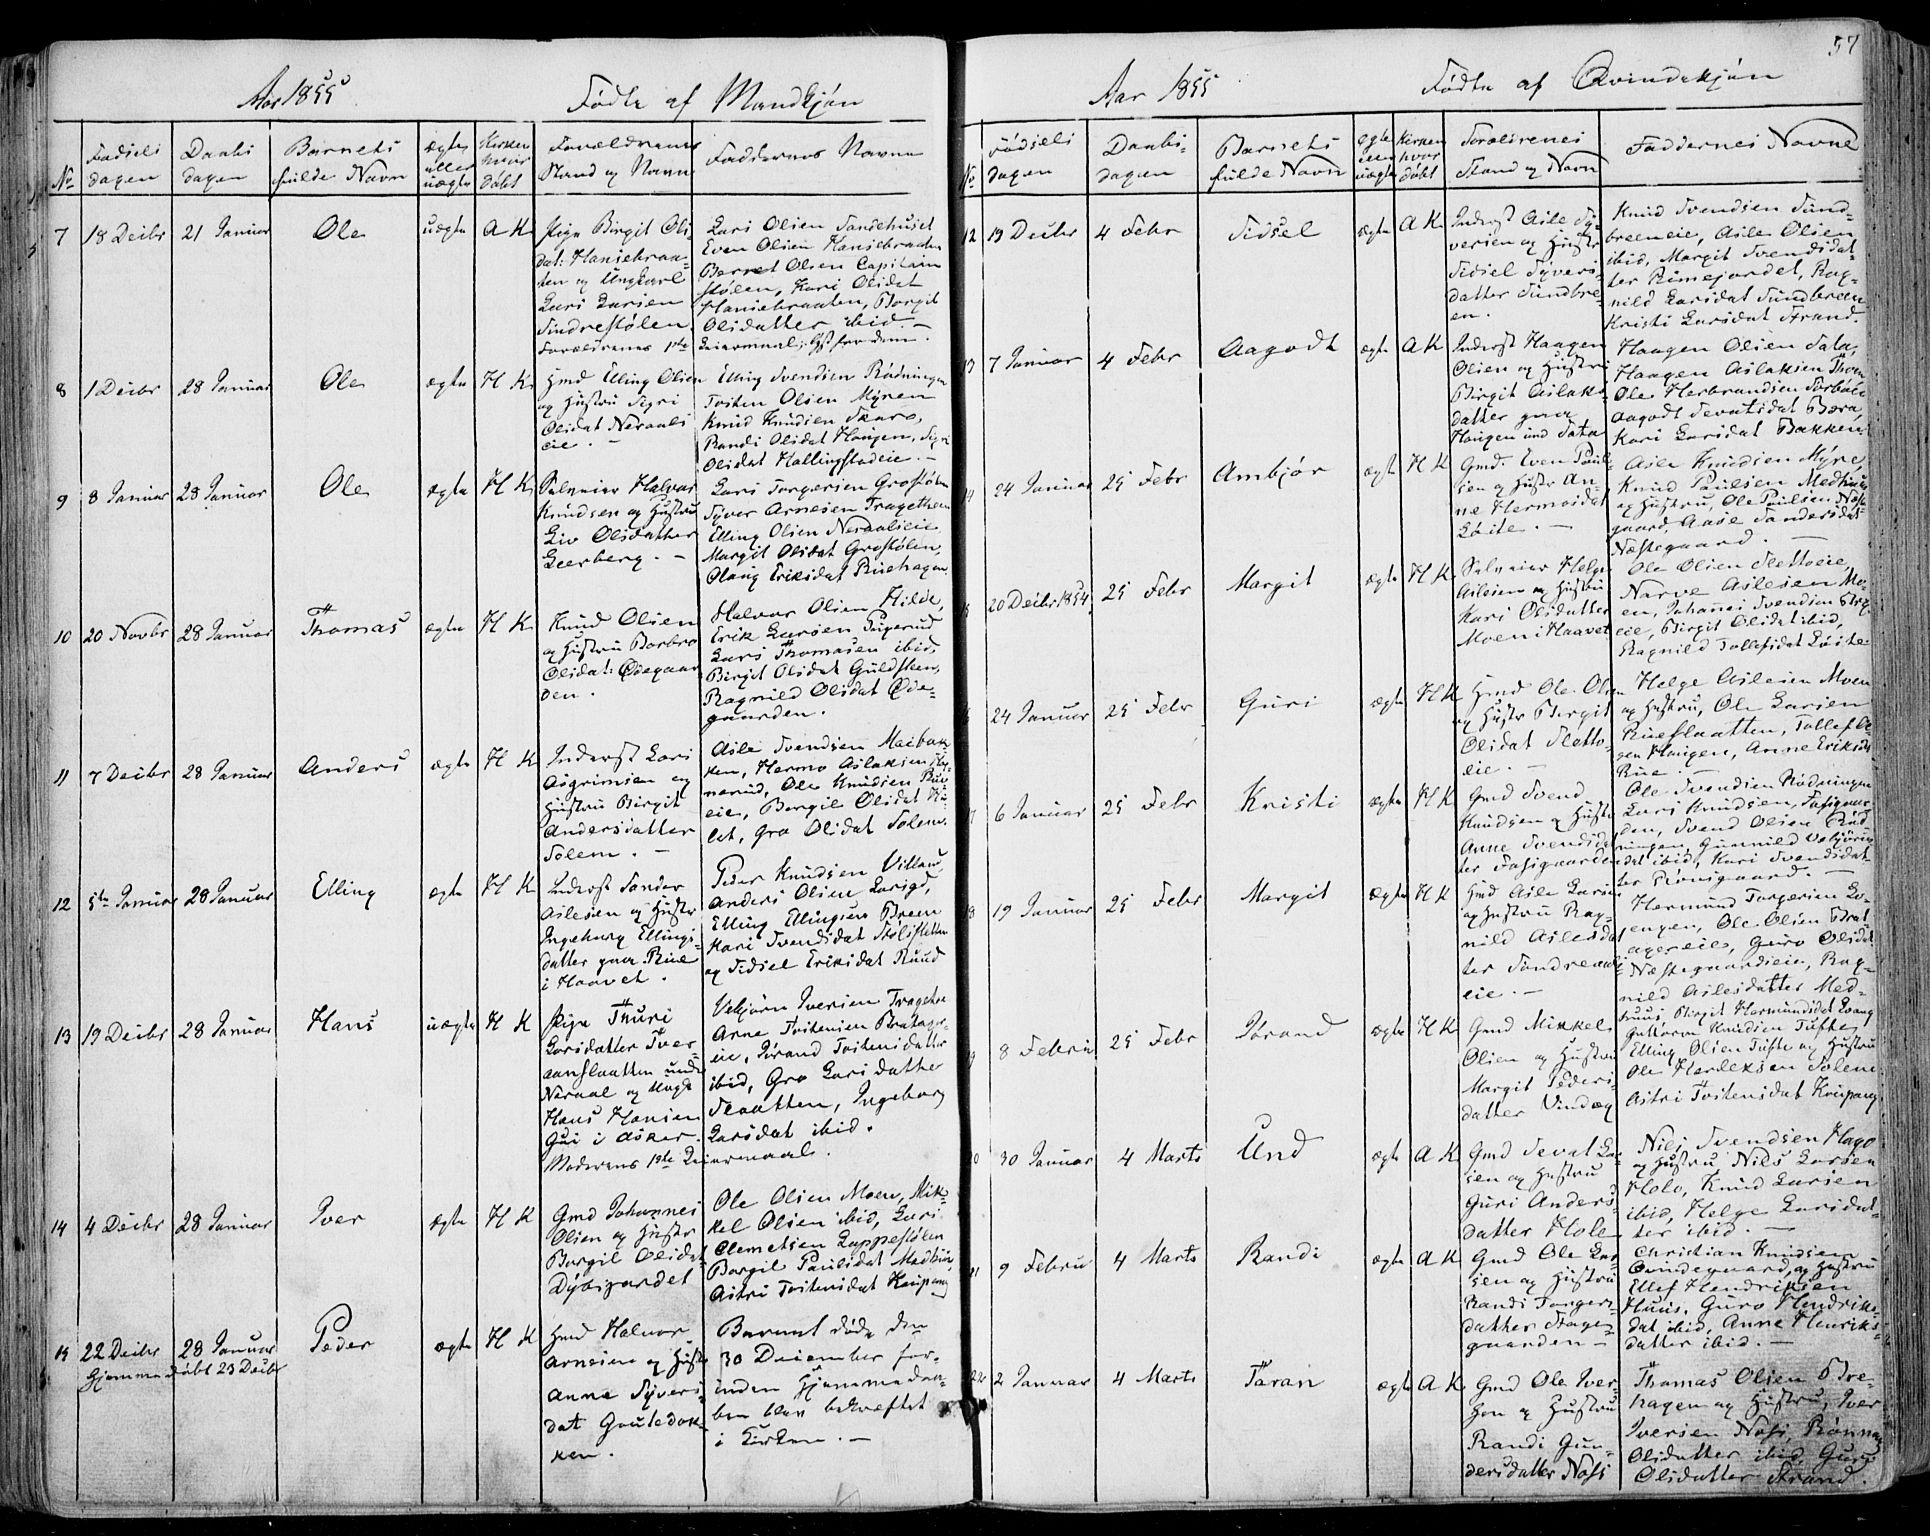 57
Aar 1855 Fødte af Mandkjøn
No
Fødsels dagen
Daabs dagen
Barnets fulde Navn
ægte eller uægte
Kirken hvor døbt
Forældrenes Stand og Navn
Faddernes Navne
7 18 Decbr 21 Januar Ole uægte A K
Pige Birgit Olsdat: Hansebraaten og Ungkarl
Lars Larsen
Sindrestølen.
Forældrenes 1ste Leiermaal;
Lars Olsen Sandehuset
Even Olsen Hansebraaten
Olsen Capitain
stølen, Kari Olsdat
Hansebraaten, Borgit
Olsdatter ibid. —
8 1 Decbr 28 Januar Ole ægte H K
Gmd Elling Olsen
og Hustru Sigri
Olsdat Neraals
eie. —
Elling Svendsen Rødningen
Tosten Olsen Myren
Knud Knudsen Skaro,
Randi Olsdat Haugen, Sigri
Olsdat Hallingstadeie. —
9 8 Januar 28 Januar Ole ægte H K
Selveier Halvor
Knudsen og Hustru
Liv Olsdatter
Leerberg. —
Lars Torgersen Grostølen
Syver Arnesen Tragethon
Elling Olsen Neraalseie
Margit Olsdat Grostølen,
Olaug Eriksdat Ruehagen.
10 20 Novbr 28 Januar Thomas ægte H K
Knud Olsen
og Hustru Barbro
Olsdat: Ødegaar
den.
Halvor Olsen Hilde,
Erik Larsen
Lars Thomasen ibid,
Birgit Olsdat Guldsteen,
Ragnild Olsdat Øde-
gaarden.
11 7 Decbr 28 Januar Anders ægte H K
Inderst Lars
Asgrimsen og
Hustru Birgit
Andersdatter
Solem. —
Asle Svendsen Maibak-
ken, Hermo Aslaksen
Ole Knudsen
eie, Borgil Olsdat
Gro Olsdat Solem.
12 5te Januar 28 Januar Elling ægte H K
Inderst Sander
Aslesen og Hustru
Ingeborg Ellings-
datter paa Rue
i Haavet.
Peder Knudsen Villand
Anders Olsen
Elling Ellingsen Breen
Kari Svendsdat Stølsletten
og Sidsel Eriksdat Ruud
13 19 Decbr 28 Januar Hans uægte H K
Pige Thuri
Larsdatter Tver-
aaslaatten under
Neraal og Ungk
Hans Hansen
Gui i Asker.
Moderens 1ste Leiermaal.
Vebjørn Iversen Tragethon
Arne Tostensen Bratager-
eie, Jørand Tostensdatter
ibid, Gro Larsdatter
Slaatten, Ingeborg
Larsdat ibid.
14 4 Decbr 28 Januar Iver ægte H K
Gmd Johannes
Olsen og Hustr
Borgil Olsdat
Dybsjordet
Ole Olsen Moen, Mik-
kel Olsen ibid, Lars
Clemetsen Lappestølen
Borgil Paulsdat Medhuus,
Astri Tostensdat Kaupang
15 22 Decbr 28 Januar Peder ægte H K
Hjemmedøbt 23 Decbr
Gmd Halvor
Arnesen og Hustr
Anna Syvers-
dat Gouledok-
ken.
Barnet døde den
30 December for-
inden Hjemmedaa-
ben blev bekræftet
i Kirken. —
Aar 1855 Fødte af Qvindekjøn
No
Fødsels dagen
Daabs- dagen
Barnets fulde Navn
ægte eller uægte
Kirken hvor døbt
Forældrenes Stand og Navn
Faddernes Navne
12 19 Decbr 4 Febr Sidsel ægte A K
Inderst Asle Sy-
versen og Hustr
Sidsel Syvers-
datter Sundbre-
en.
Knud Svendsen Sund-
breeneie, Asle Olsen
ibid, Margit Svendsdat-
ter Rimejordet, Rag-
nild Larsdat Sundbreen
Kristi Larsdat Strand.
13 7 Januar 4 Febr Aagodt ægte A K
Inderst Haagen
Olsen og Hustru
Birgit Aslaks-
datter paa
Haugen und Sata
Haagen Olsen Sata,
Haagen Aslaksen Thoen
Ole Herbrandsen
Aagodt Sevatsdat Bæra,
Kari Larsdat Bakken.
14 24 Januar 25 Febr Ambjør ægte H K
Gmd. Even Paul-
sen og Hustr An-
ne Hermosdat
Løite. —
Asle Knudsen Myre,
Knud Paulsen Medhuus
og Hustru, Ole Paulsen Næste
gaard Aase Sandersdat
Næstegaard. —
15 20 Decbr 1854 25 Febr Margit ægte H K
Selveier Helge
Aslesen og Hustru
Kari Olsdatter
Moen i Haavet
Ole Olsen Slettoeie,
Narve Aslesen Mo-
en, Johannes Svendsen
eie, Birgit Olsdat ibid,
Ragnild Tollefsdat Løite
24 Januar 25 Febr Guri ægte H K
Gmd Ole Olsen
og Hustr Birgit
Olsdat Sletto-
eie. —
Helge Aslesen Moen
og Hustru, Ole Larsen
Rueslaatten, Tollef
Haugen, Anne Eriksdt
Rue. —
7 6 Januar 25 Febr Kristi ægte H K
Gmd Svend
Knudsen og Hustr
Anne Svendsdat
ter
Ole Svendsen Rødningen
Lars Knudsen,
den, Svend Olsen Rød
ningen, Gunnild Vebjørns
dat ibid, Kari Svendsdat
ter Rønsgaard. —
18 19 Januar 25 Febr Margit ægte H K
Gmd Asle Larsen
og Hustru Rag-
nild Aslesdat
ter Sandreaals
eie. —
Hermund Torgersen Lo-
engen, Ole Olsen Brat
agereie, Guro Olsdat
Næstegaardseie, Rag-
nild Aslesdatter Med-
huus, Birgit Hermundsdat
9 8 Februar 25 Febr Jørand ægte H K
Gmd Mikkel
Olsen og Hustru
Margit Peders-
datter Vindeg
Guttorm Knudsen Tufte,
Elling Olsen Tufte og Hustru
Ole Herleksen Solem
Astri Tostensdat Kaupang
20 30 Januar 4 Marts Und ægte A K
Gmd Sevat Lar-
sen og Hustru
Guri Anders
datter Hole
Nils Svendsen Hago
og Hustru, Nils Larsen
Holo, Knud Larsen
ibid, Helge Larsdat-
ter ibid. —
21 9 Februar 4 Marts Randi ægte A K
Gmd Ole Lar-
sen og Hustru
Randi Torgers-
datter Hage-
gaarden —
Christian Knudsen
Qvindegaard, og Hustru
Ellef Hendriksen
Huus, Guro Hendriks-
dat ibid, Anne Henriks-
datter ibid. —
22 2 Januar 4 Marts Taran ægte A K
Gmd Ole Iver-
sen og Hustru
Randi Gun-
dersdatter Noss
Thomas Olsen Bre-
hagen og Hustru, Iver
Iversen Noss, Rønnaug
Olsdatter ibid, Guri
Olsdatter Strand.